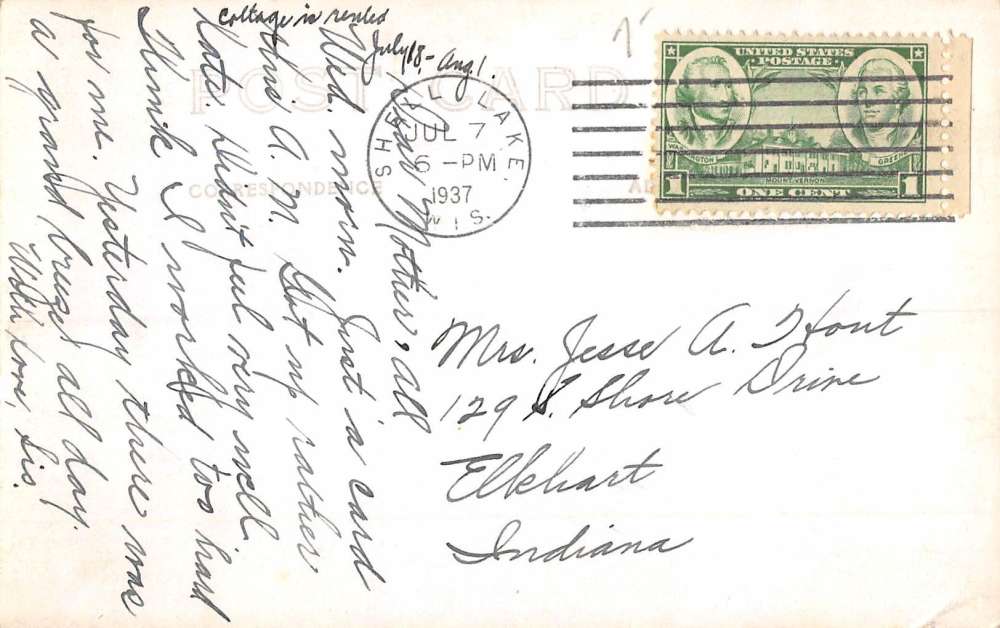 cottage is rented
July 18, - Aug 1.
POST CARD
CORRESPONDENCE
Dear Mother & all
Wed. morn. Just a card
this A. M. Got up rather
late. Didn't feel very well.
Think I worked too hard
for me. Yesterday there was
a grand breeze all day.
With love, Sis.
SHELL LAKE,
JUL 7
6 - PM
1937
WIS.
UNITED STATES
POSTAGE
WASHINGTON
GREENE
MOUNT VERNON
1 ONE CENT 1
Mrs. Jesse A. Hout
129 S. Shore Drive
Elkhart
Indiana